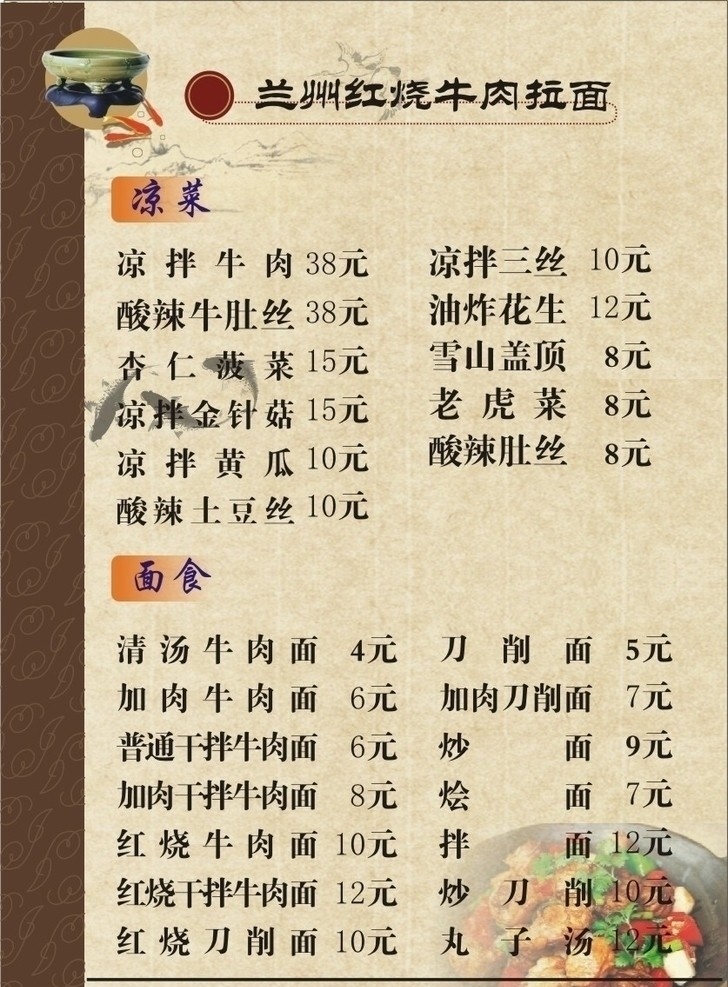 兰州红烧牛肉拉面
凉菜
凉拌牛肉 38元
酸辣牛肚丝 38元
杏仁菠菜 15元
凉拌金针菇 15元
凉拌黄瓜 10元
酸辣土豆丝 10元
凉拌三丝 10元
油炸花生 12元
雪山盖顶 8元
老虎菜 8元
酸辣肚丝 8元
面食
清汤牛肉面 4元
加肉牛肉面 6元
普通干拌牛肉面 6元
加肉干拌牛肉面 8元
红烧牛肉面 10元
红烧干拌牛肉面 12元
红烧刀削面 10元
刀削面 5元
加肉刀削面 7元
炒面 9元
烩面 7元
拌面 12元
炒刀削 10元
丸子汤 12元